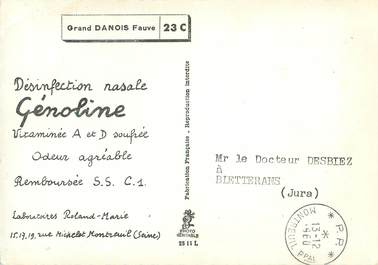 Grand DANOIS Fauve 23 C
Désinfection nasale
Génoline
Vitaminée A et D soufrée
Odeur agréable
Remboursée S.S. C.1.
Laboratoires Roland-Marie
15.17.19, rue Michelet Montreuil (Seine)
Fabrication Française - Reproduction interdite
PHOTO
VÉRITABLE
Mr le Docteur DESBIEZ
à
BLETTERANS
(Jura)
* P.P. *
13-12
1960
MONTREUIL PPAL